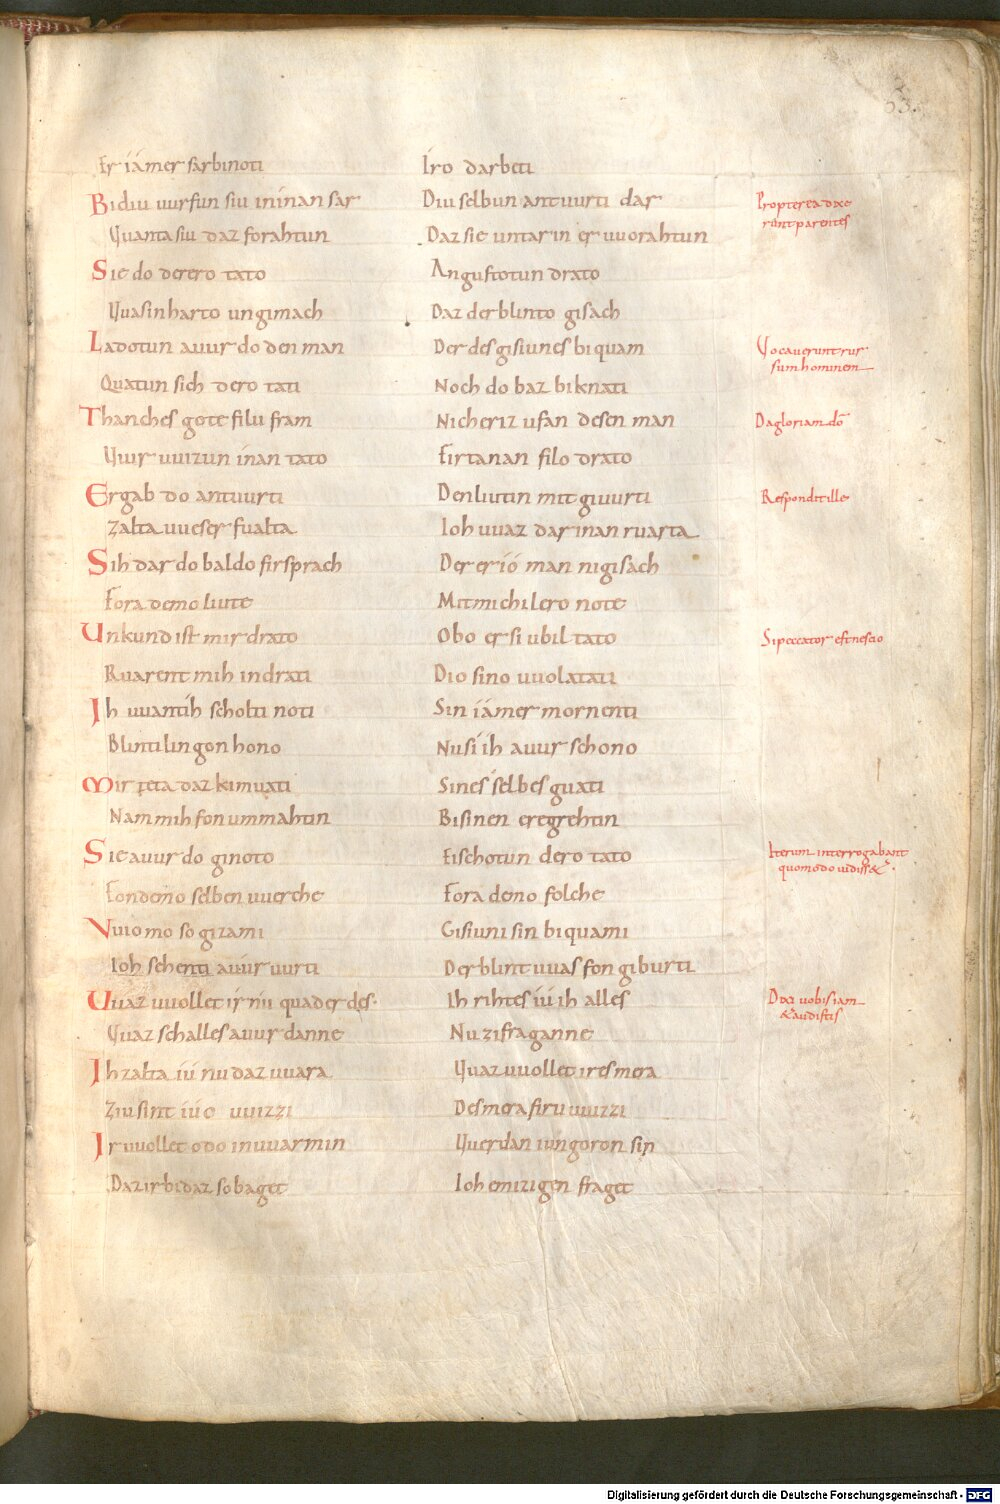 63.
Er iámer sarbinoti Iro darbeti
Bidiu uurfun siu ininan sar Diu selbun antuurti dar
Quanta siu daz forahtun Daz sie untar in er uuorahtun
Propterea dixe
runt parentes
Sie do derero tato Angustotun drato
Uuasin harto ungimach Daz der blinto gisach
Ladotun auur do den man Der des gisiunes biquam
Vocauerunt rur
sum hominem
Quatun sich dero tati Noch do baz biknati
Thanches gote filu fram Nicheriz ufan desen man
Da gloriam dō
Uuir uuizun inan tato Firtanan filo drato
Ergab do antuurti Den liutin mit giuurti
Respondit ille
Zalta uueser fualta Ioh uuaz dar inan ruarta
Sih dar do baldo firsprach Der er ió man nigisach
Fora demo liute Mit michilero note
Unkund ist mir drato Obo er si ubil tato
Si peccator est nescio
Ruarent mih indrati Dio sino uuolatati
Ih uuantih scholti noti Sin iámer mornenti
Blintilingon hono Nu si ih auur schono
Mir teta daz kimuati Sines selbes guati
Nam mih fon ummahtin Bi sinen eregrehtin
Sie auur do ginoto Eischotun dero tato
Iterum interrogabant
quomodo uidiss&.
Fondemo selben uuerche Fora demo folche
Vuiomo so gizami Gisiuni sin biquami
Ioh sehenti auur uurti Der blint uuas fon giburti
Uuaz uuollet ir nu quad er des. Ih rihtes iú ih alles
Dixi uobis iam
& audistis
Quaz schalles auur danne Nu zi fraganne
Ih zalta iú nu daz uuara Uuaz uuollet ires mera
Ziu sint iúo uuizzi Des mera firuuuizzi
Ir uuollet odo inuuarmin Uuerdan iungoron sin
Daz ir bi daz so baget Ioh emizigen fraget
Digitalisierung gefördert durch die Deutsche Forschungsgemeinschaft - DFG